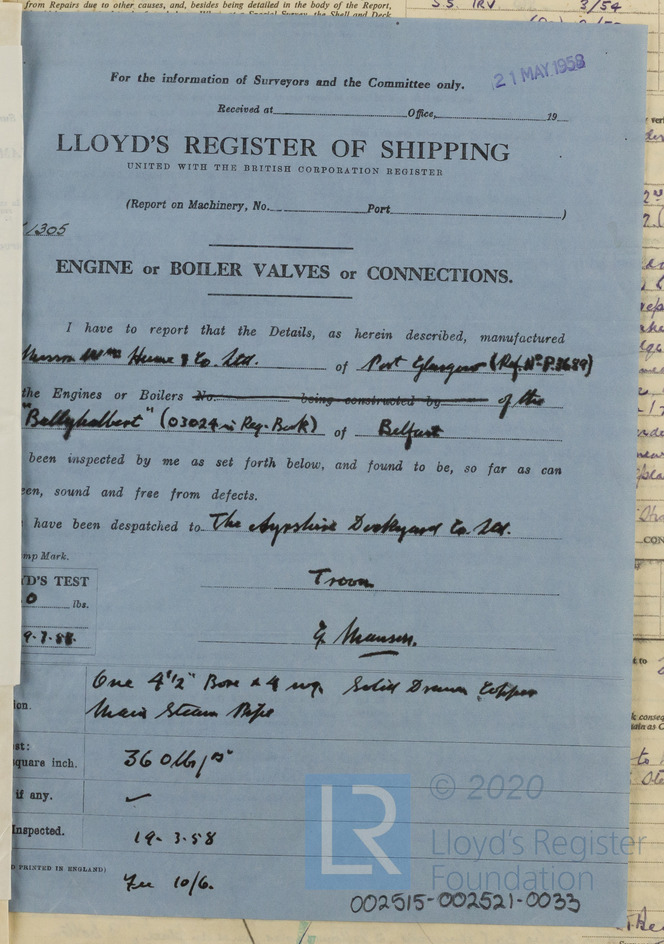 from Repairs due to other causes, and, besides being detailed in the body of the Report,
S.S. IRV 3/54
21 MAY 1958
For the information of Surveyors and the Committee only.
Received at Office, 19
LLOYD'S REGISTER OF SHIPPING
UNITED WITH THE BRITISH CORPORATION REGISTER
(Report on Machinery, No. Port )
1305
ENGINE or BOILER VALVES or CONNECTIONS.
I have to report that the Details, as herein described, manufactured
Wm Hume & Co. Ltd. of Port Glasgow (Ref. No P.3689)
the Engines or Boilers No. being constructed by of the
"Ballyhalbert" (03024 in Reg. Book) of Belfast
been inspected by me as set forth below, and found to be, so far as can
een, sound and free from defects.
have been despatched to The Ayrshire Dockyard Co. Ltd.
mp Mark.
Troon
YD'S TEST
0 lbs.
G. Manson.
One 4½" Bore x 4 wg. Solid Drawn Copper
ion.
Main Steam Pipe
st:
square inch. 360 lbs/□"
if any. ✓
Inspected. 19-3-58
D PRINTED IN ENGLAND)
Fee 10/6.
© 2020
LR
Lloyd's Register
Foundation
002515-002521-0033